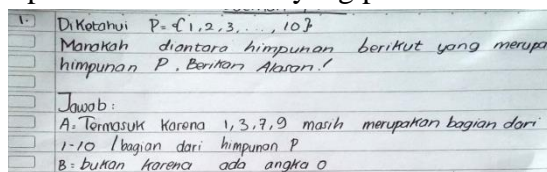 1. Diketahui P = {1, 2, 3, ..., 10}
Manakah diantara himpunan berikut yang merupa
himpunan P. Berikan Alasan.!
Jawab :
A = Termasuk karena 1, 3, 7, 9 masih merupakan bagian dari
1-10 / bagian dari himpunan P
B = bukan karena ada angka 0